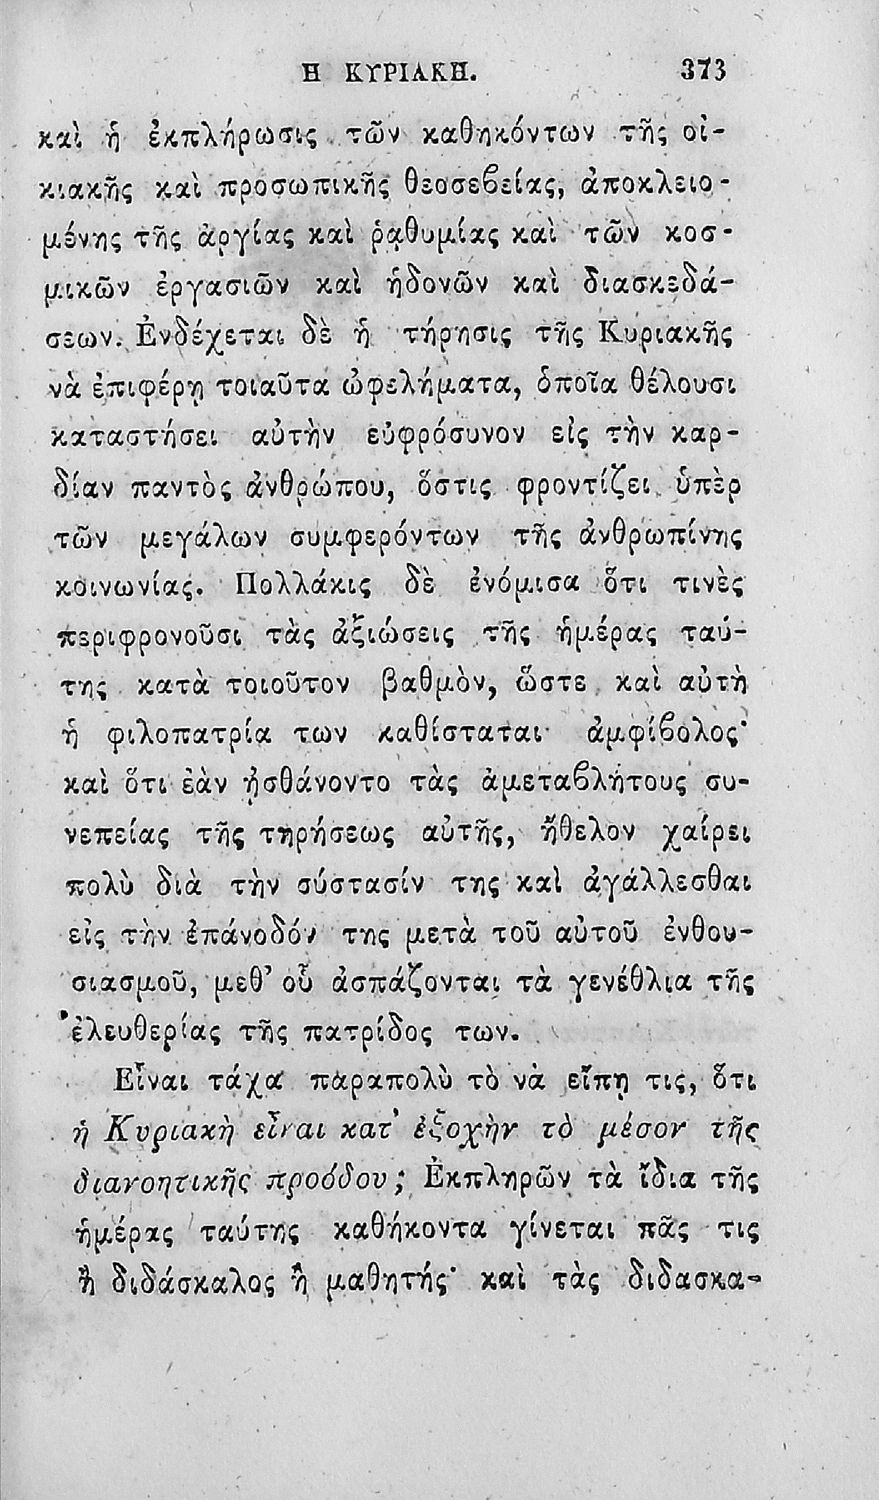 Η ΚΥΡΙΑΚΗ. 373
καὶ ἡ ἐκπλήρωσις τῶν καθηκόντων τῆς οἰ-
κιακῆς καὶ προσωπικῆς θεοσεβείας, ἀποκλειο-
μένης τῆς ἀργίας καὶ ῥαθυμίας καὶ τῶν κοσ-
μικῶν ἐργασιῶν καὶ ἡδονῶν καὶ διασκεδά-
σεων. Ἐνδέχεται δὲ ἡ τήρησις τῆς Κυριακῆς
νὰ ἐπιφέρῃ τοιαῦτα ὠφελήματα, ὁποῖα θέλουσι
καταστήσει αὐτὴν εὐφρόσυνον εἰς τὴν καρ-
δίαν παντὸς ἀνθρώπου, ὅστις φροντίζει ὑπὲρ
τῶν μεγάλων συμφερόντων τῆς ἀνθρωπίνης
κοινωνίας. Πολλάκις δὲ ἐνόμισα ὅτι τινὲς
περιφρονοῦσι τὰς ἀξιώσεις τῆς ἡμέρας ταύ-
της κατὰ τοιοῦτον βαθμὸν, ὥστε καὶ αὐτὴ
ἡ φιλοπατρία των καθίσταται ἀμφίβολος·
καὶ ὅτι ἐὰν ᾐσθάνοντο τὰς ἀμεταβλήτους συ-
νεπείας τῆς τηρήσεως αὐτῆς, ἤθελον χαίρει
πολὺ διὰ τὴν σύστασίν της καὶ ἀγάλλεσθαι
εἰς τὴν ἐπάνοδόν της μετὰ τοῦ αὐτοῦ ἐνθου-
σιασμοῦ, μεθ' οὗ ἀσπάζονται τὰ γενέθλια τῆς
ἐλευθερίας τῆς πατρίδος των.
Εἶναι τάχα παραπολὺ τὸ νὰ εἴπῃ τις, ὅτι
ἡ Κυριακὴ εἶναι κατ' ἐξοχὴν τὸ μέσον τῆς
διανοητικῆς προόδου; Ἐκπληρῶν τὰ ἴδια τῆς
ἡμέρας ταύτης καθήκοντα γίνεται πᾶς τις
ἢ διδάσκαλος ἢ μαθητής· καὶ τὰς διδασκα-